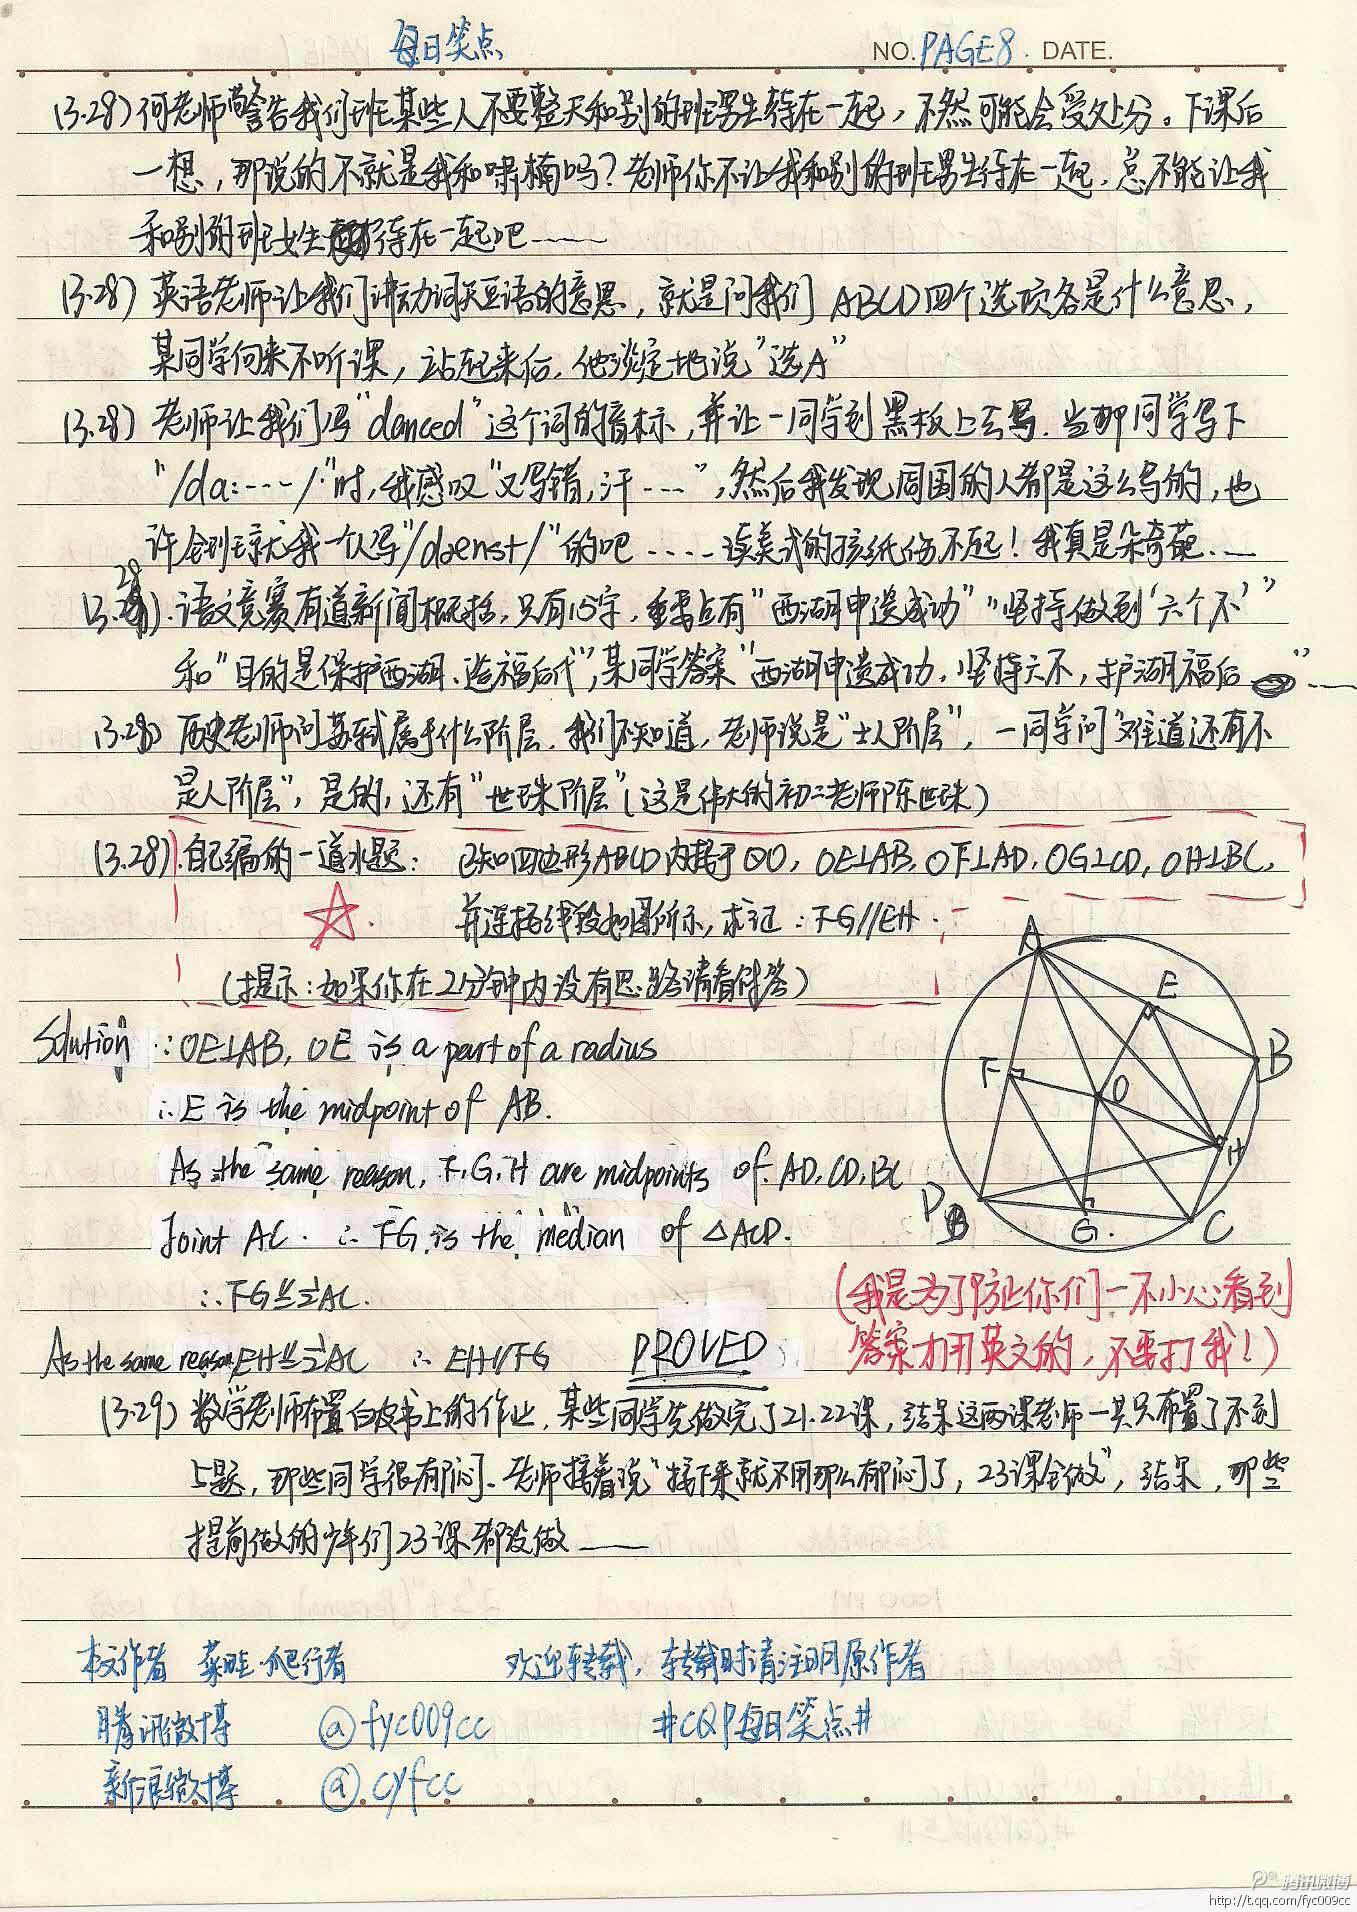 每日笑点
NO. PAGE8. DATE.
(3.28) 何老师警告我们班某些人不要整天和别的班男生待在一起，不然可能会受处分。下课后
一想，那说的不就是我和啸楠吗？老师你不让我和别的班男生待在一起，总不能让我
和别的班女生待在一起吧……
(3.28) 英语老师让我们讲动词天豆语的意思，就是问我们ABCD四个选项各是什么意思，
某同学向来不听课，站起来后，他淡定地说"选A"
(3.28) 老师让我们写"danced"这个词的音标，并让一同学到黑板上去写，当那同学写下
"/da:----/"时，我感叹"又写错，汗……"，然后我发现周围的人都是这么写的，也
许全班就我一个人写"/daenst/"的吧……读美式的孩纸伤不起！我真是朵奇葩……
(3.28). 语文竞赛有道新闻概括，只有15字，重点有"西湖申遗成功""坚持做到'六个不'"
和"目的是保护西湖、造福后代"，某同学答案"西湖申遗成功，坚持六不，护湖福后"……
(3.28) 历史老师问苏轼属于什么阶层，我们不知道，老师说是"士人阶层"，一同学问"难道还有不
是人阶层"，是的，还有"世珠阶层"（这是伟大的初二老师陈世珠）
(3.28). 自己编的一道水题： 已知四边形ABCD内接于⊙O，OE⊥AB，OF⊥AD，OG⊥CD，OH⊥BC，
并连接线段如图所示，求证：FG//EH.
（提示：如果你在2分钟内没有思路请看解答）
Solution ∵OE⊥AB, OE is a part of a radius
∴E is the midpoint of AB.
As the same reason, F, G, H are midpoints of AD, CD, BC
Joint AC. ∴FG is the median of △ACD.
∴FG∥=½AC.
As the same reason, EH∥=½AC ∴EH//FG PROVED
A
E
B
F
O
H
D
G.
C
（我是为了防止你们一不小心看到
答案才用英文的，不要打我！）
(3.29) 数学老师布置白皮书上的作业，某些同学先做完了21.22课，结果这两课老师一共只布置了不到
5题，那些同学很有郁闷、老师接着说"接下来就不用那么郁闷了，23课全做"，结果，那些
提前做的少年们23课都没做……
本文作者 菜畦·爬行者 欢迎转载，转载时请注明原作者
腾讯微博 @fyc009cc #CQP每日笑点#
新浪微博 @cyfcc
腾讯微博
http://t.qq.com/fyc009cc